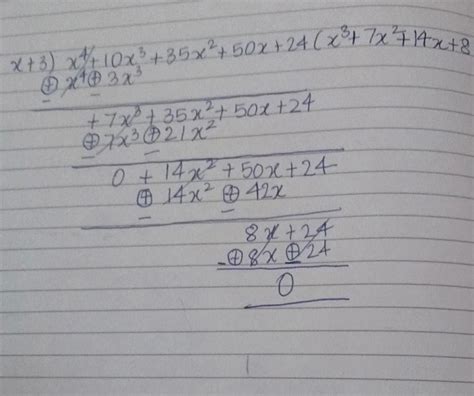 x+3) x⁴+10x³+35x²+50x+24 (x³+7x²+14x+8
⊕ x⁴ ⊕ 3x³
− −
+7x³+35x²+50x+24
⊕ 7x³ ⊕ 21x²
− −
0 + 14x²+50x+24
⊕ 14x² ⊕ 42x
− −
8x+24
-⊕8x ⊕24
0